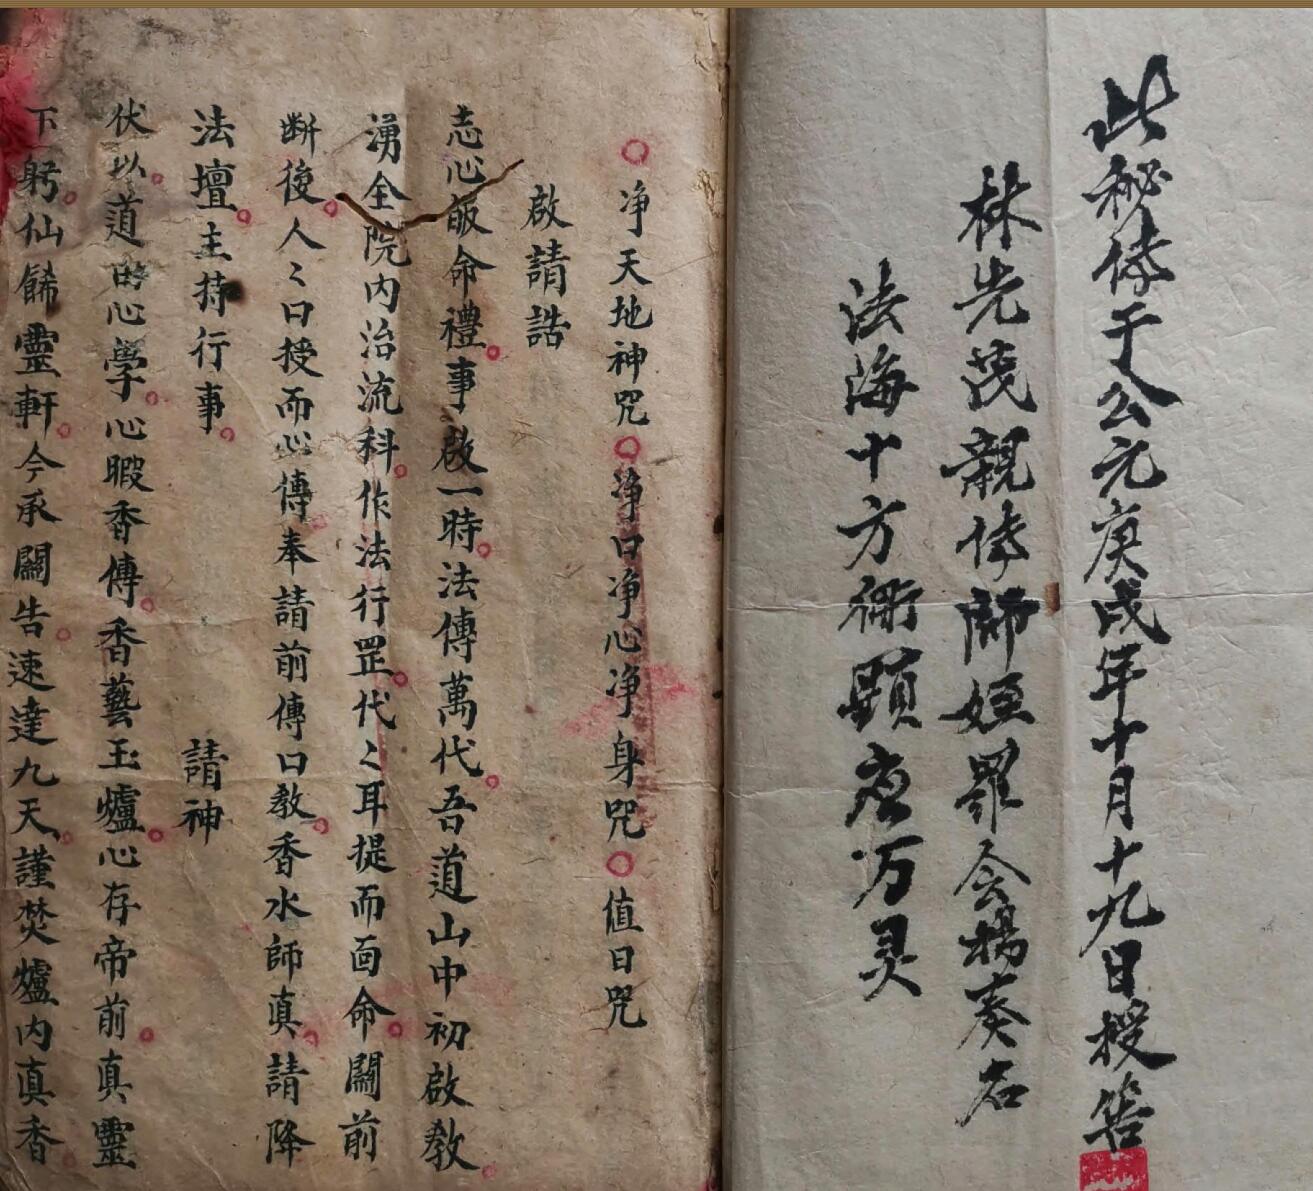 此秘传于公元庚戌年十月十九日授筶
林先茂親传師姪罪会楊奏名
法海十方術顕应万灵
净天地神咒 净口净心净身咒 值日咒
啟請誥
志心皈命禮事啟一時法傳萬代吾道山中初啟教
湧全院内治流科作法行罡代〻耳提而面命闢前
断後人〻口授而心傳奉請前傳口教香水師真請降
法壇主持行事 請神
伏以道由心學心暇香傳香藝玉爐心存帝前真靈
下躬仙餙靈軒今承關告速達九天謹焚爐内真香